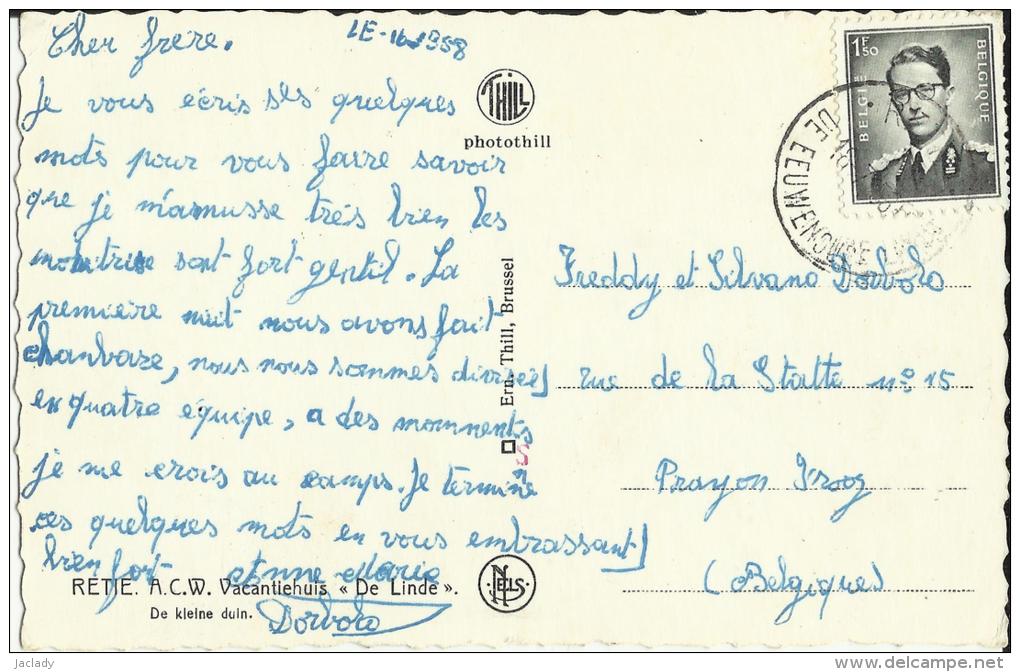 Cher frère.
LE-16-1958
Je vous écris ses quelques
mots pour vous faire savoir
que je m'amusse treis bien les
monitrise sont fort gentil. La
première nuit nous avons fait
, nous nous sommes divisées
en quatre équipe, a des momnents
je me crois au camps. Je termine
ces quelques mots en vous embrassant
bien fort Anne Marie
Dorbolo
THILL
photothill
Ern. Thill, Brussel
NELS
RETIE. A.C.W. Vacantiehuis « De Linde ».
De kleine duin.
1F50
BELGIE
BELGIQUE
Freddy et Silvano Dorbolo
rue de la Statte n° 15
Prayon Trooz
(Belgiques)
jaclady
http://www.delcampe.net